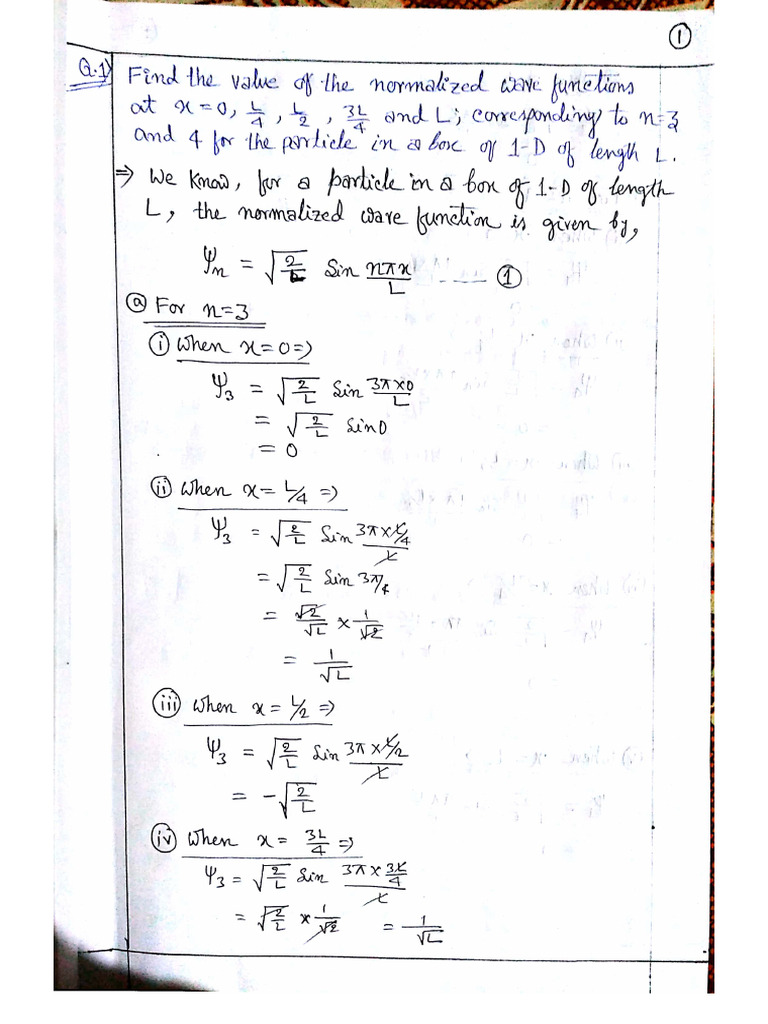 ①
Q.1) Find the value of the normalized wave functions
at x=0, L/4, L/2, 3L/4 and L; corresponding to n=3
and 4 for the particle in a box of 1-D of length L.
⇒ We know, for a particle in a box of 1-D of length
L, the normalized wave function is given by,
Ψn = √(2/L) Sin nπx/L ---- ①
ⓐ For n=3
ⓘ When x=0 ⇒
Ψ3 = √(2/L) Sin 3π×0/L
= √(2/L) Sin0
= 0
(ii) When x= L/4 ⇒
Ψ3 = √(2/L) Sin 3π×L/4/L
= √(2/L) Sin 3π/4
= √2/√L × 1/√2
= 1/√L
(iii) When x= L/2 ⇒
Ψ3 = √(2/L) Sin 3π×L/2/L
= -√(2/L)
(iv) When x= 3L/4 ⇒
Ψ3 = √(2/L) Sin 3π×3L/4/L
= √(2/L) × 1/√2 = 1/√L